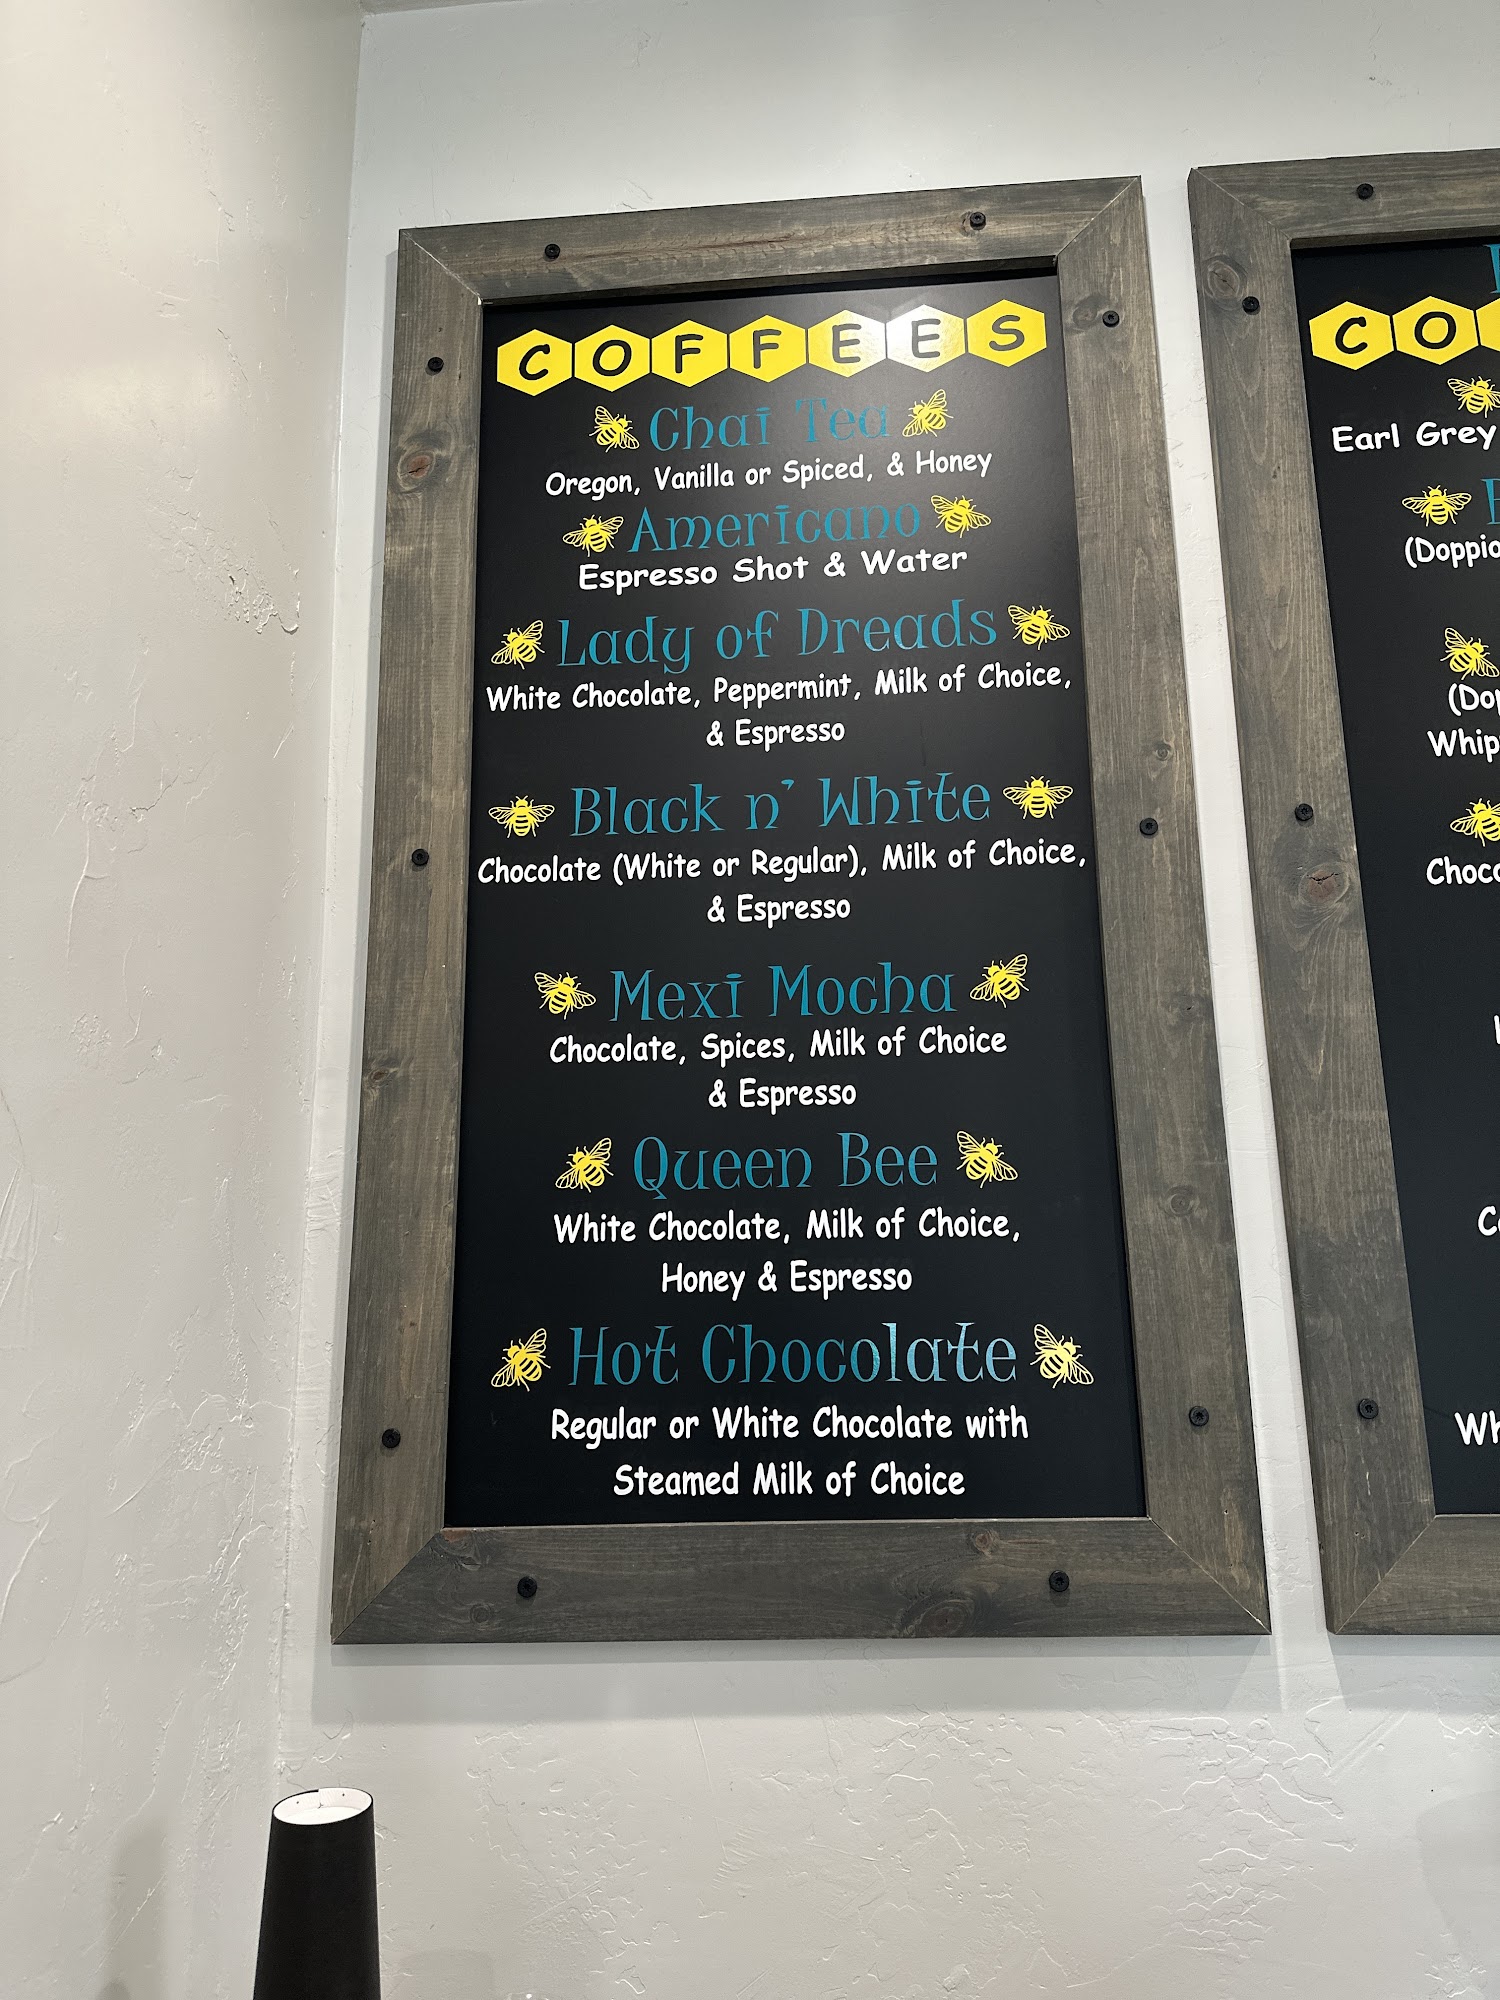 COFFEES
Chai Tea
Oregon, Vanilla or Spiced, & Honey
Americano
Espresso Shot & Water
Lady of Dreads
White Chocolate, Peppermint, Milk of Choice,
& Espresso
Black n' White
Chocolate (White or Regular), Milk of Choice,
& Espresso
Mexi Mocha
Chocolate, Spices, Milk of Choice
& Espresso
Queen Bee
White Chocolate, Milk of Choice,
Honey & Espresso
Hot Chocolate
Regular or White Chocolate with
Steamed Milk of Choice
CO
Earl Grey